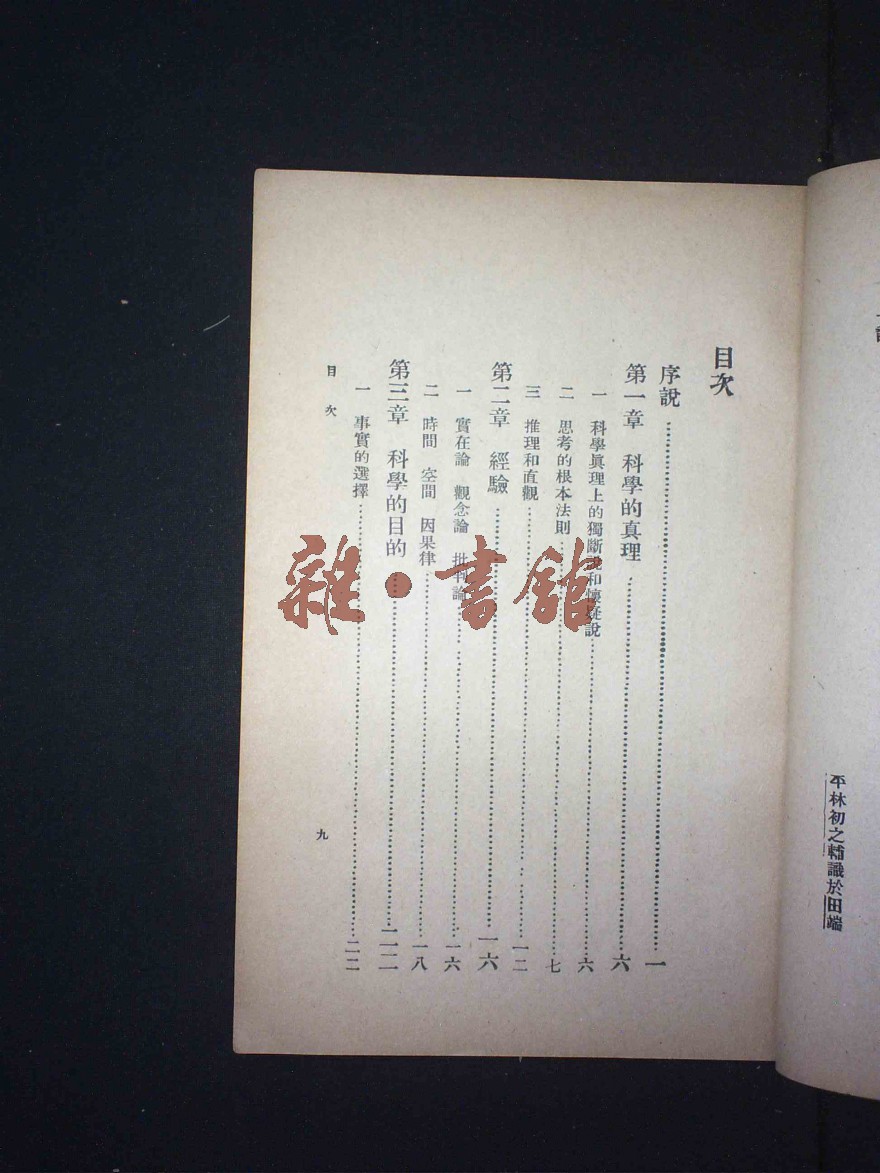 平林初之輔識於田端
目次
序說………一
第一章 科學的真理………六
一 科學眞理上的獨斷說和懷疑說………六
二 思考的根本法則………七
三 推理和直觀………一二
第二章 經驗………一六
一 實在論 觀念論 批判論………一六
二 時間 空間 因果律………一八
第三章 科學的目的………二二
一 事實的選擇………二二
目次
九
雜·書館